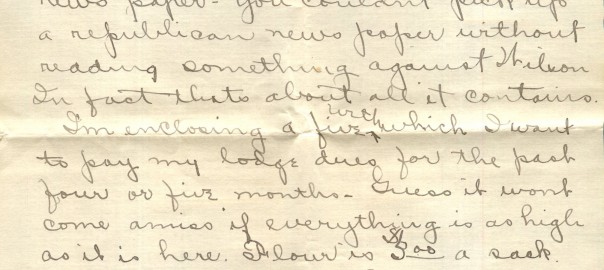 news paper - You couldn't pick up
a republican news paper without
reading something against Wilson
In fact thats about all it contains.
I'm enclosing a five with which I want
to pay my lodge dues for the past
four or five months - Guess it wont
come amiss if everything is as high
as it is here. Flour is $3.00 a sack.